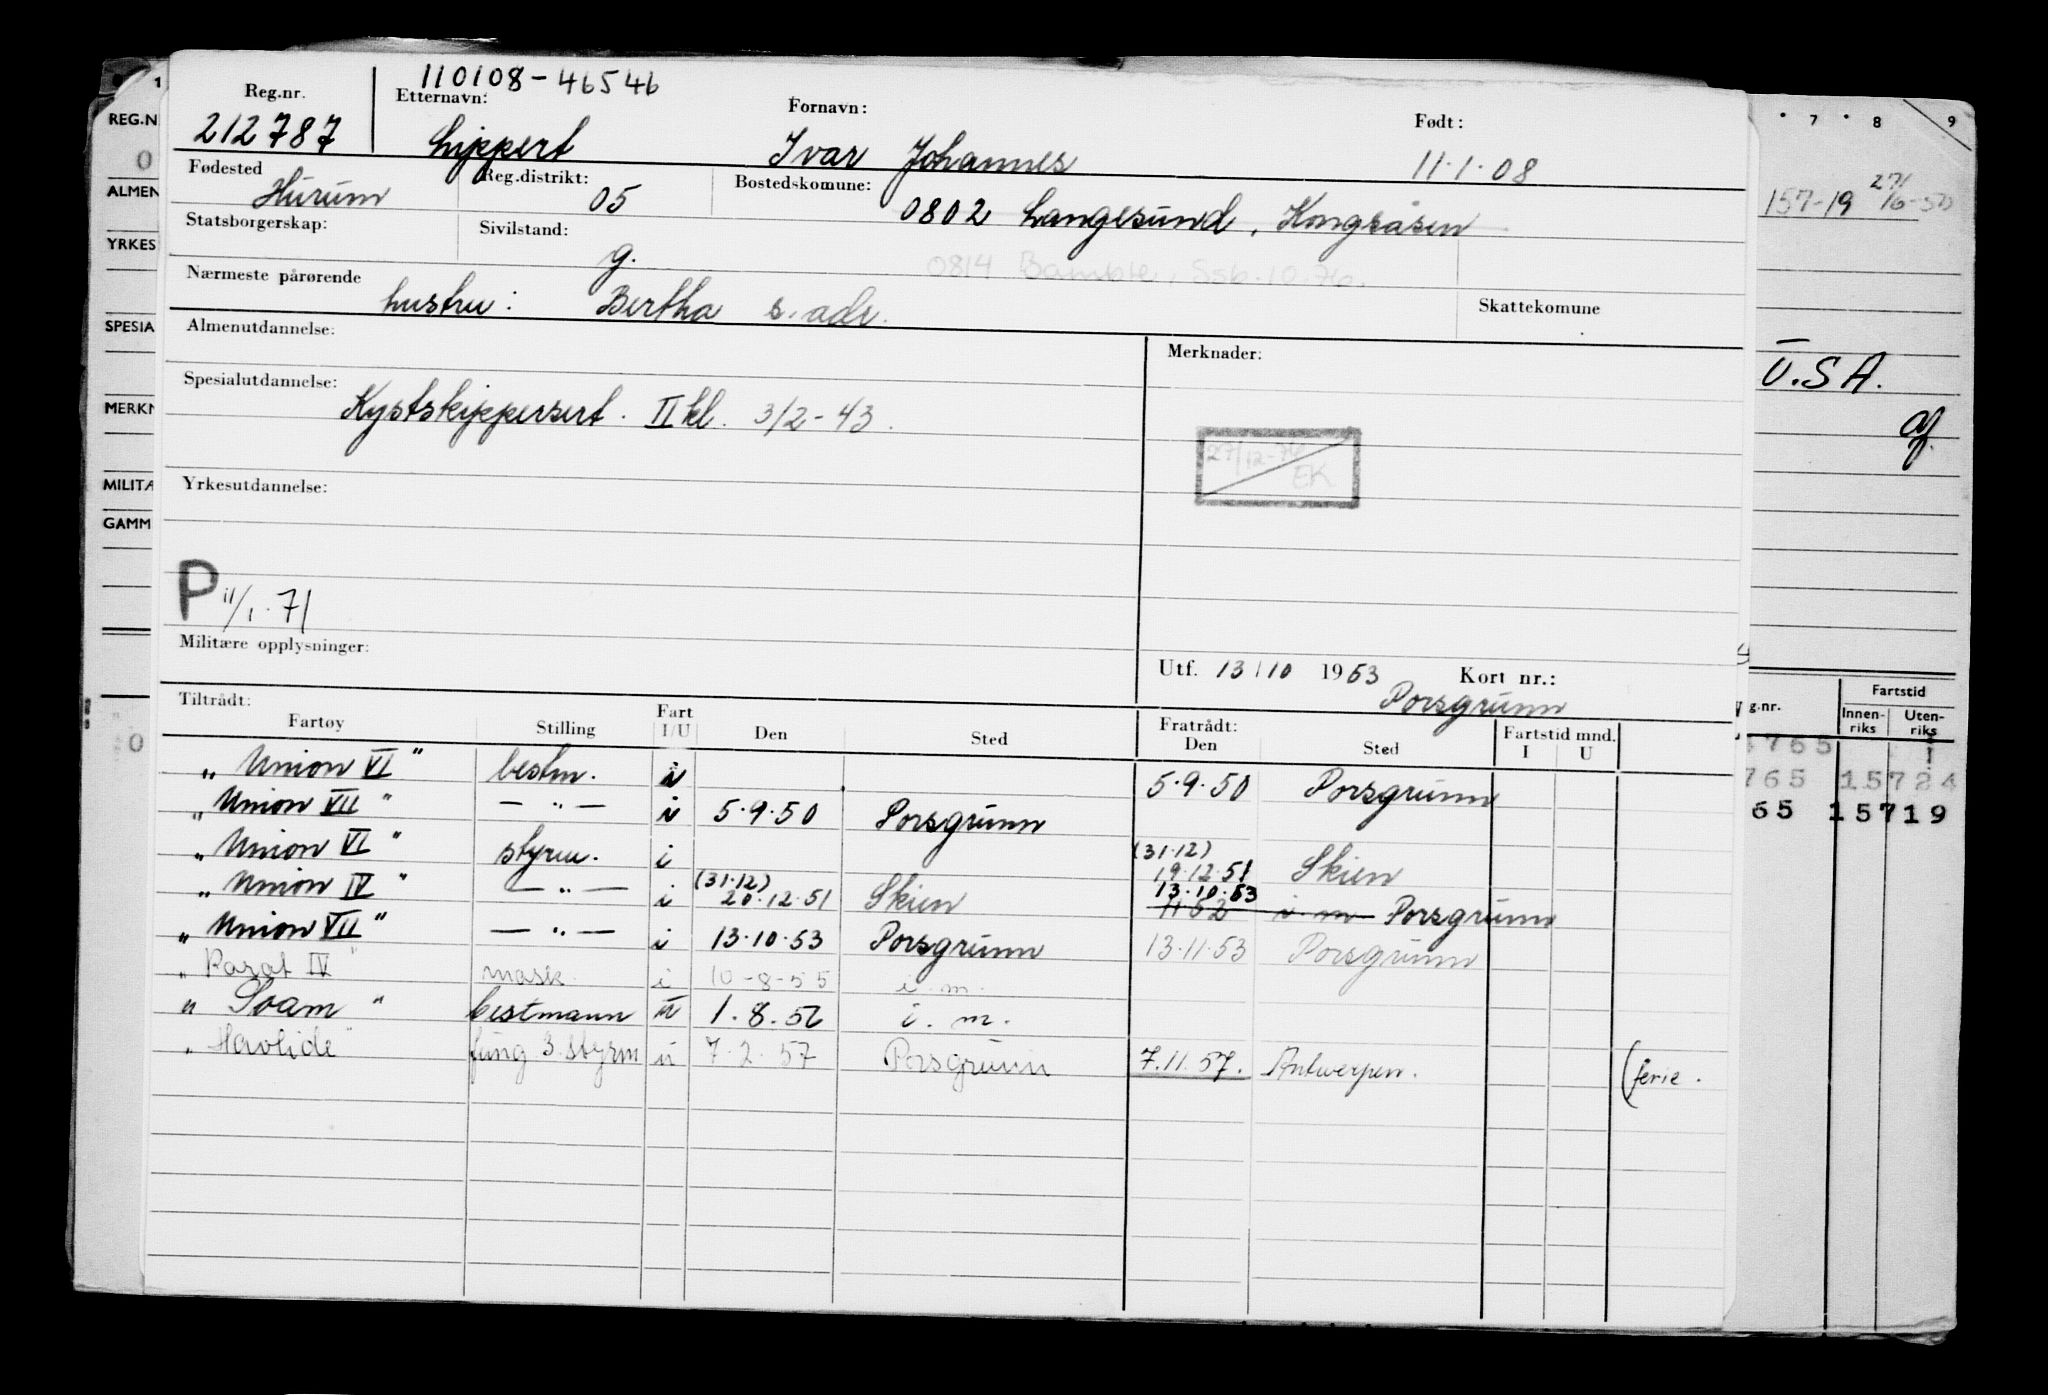 110108-46546
Reg.nr. Etternavn: Fornavn: Født:
212787 Lippert Ivar Johannes 11.1.08
Fødested Reg.distrikt: Bostedskomune:
Hurum 05 0802 Langesund, Kongsåsen
Statsborgerskap: Sivilstand:
g. 0814 Bamble, Ssb. 10.76.
Nærmeste pårørende Skattekomune
hustru: Bertha s. adr.
Almenutdannelse: Merknader:
Spesialutdannelse:
Kystskippersert. II kl. 3/2-43.
27/12-76 EK
Yrkesutdannelse:
P 11/1.71
Militære opplysninger:
Utf. 13/10 1953 Kort nr.:
Porsgrunn
Tiltrådt: Fratrådt:
Fartøy Stilling Fart I/U Den Sted Den Sted Fartstid mnd. I U
"Union VI" bestm. i 5.9.50 Porsgrunn
"Union VII" — " — i 5.9.50 Porsgrunn
"Union VI" styrm. i (31.12) 19.12.51 Skien
"Union IV" — " — i (31.12) 20.12.51 Skien 13.10.53 Porsgrunn
"Union VII" — " — i 13.10.53 Porsgrunn 13.11.53 Porsgrunn
"Parat IV" mask. i 10-8-55 i. m.
"Svam" bestmann u 1.8.56 i. m.
"Havlide" fung 3. styrm u 7.2.57 Porsgrunn 7.11.57. Antwerpen. (ferie.
REG.N
ALMEN
YRKES
SPESIA
MERKN
MILITÆ
GAMM
7 8 9
157-19
U.S.A.
g.nr. Fartstid
Innen-riks Uten-riks
765 15724
65 15719